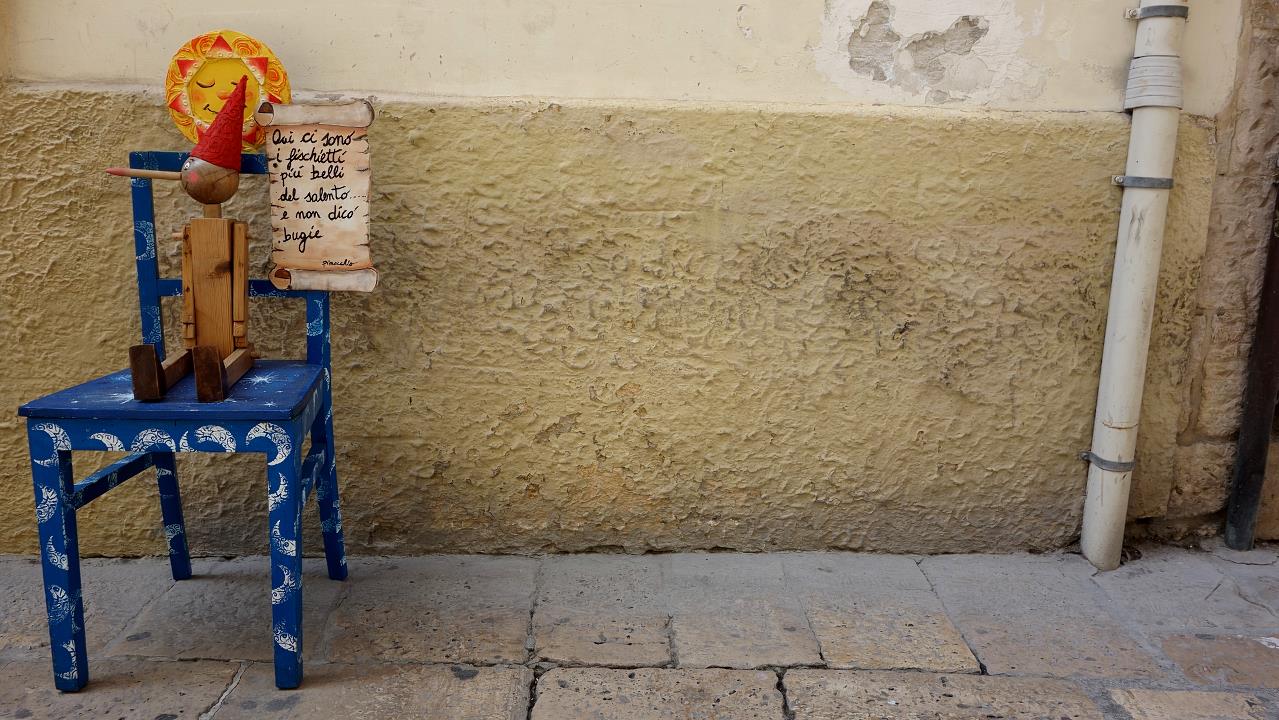 Qui ci sono
i fischietti
più belli
del salento....
e non dico
bugie
Pinocchio